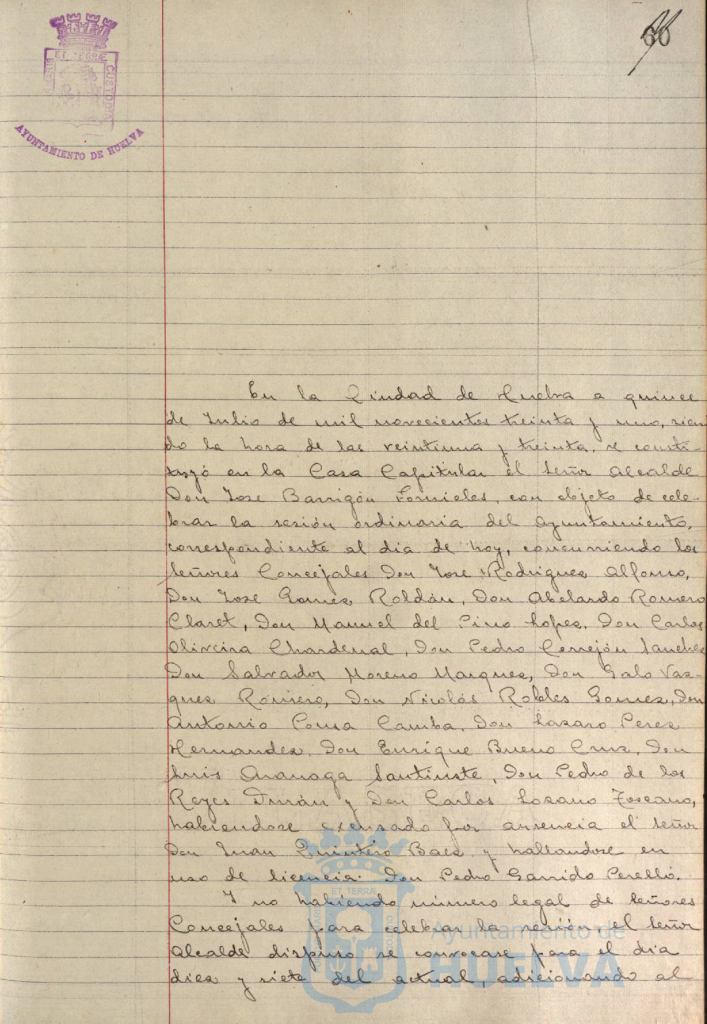 60
AYUNTAMIENTO DE HUELVA
En la Ciudad de Huelva a quince
de Julio de mil novecientos treinta y uno, sien-
do la hora de las veintiuna y treinta, se consti-
tuyó en la Casa Capitular el Señor Alcalde
Don Jose Barrigón Fornieles, con objeto de cele-
brar la sesión ordinaria del Ayuntamiento,
correspondiente al dia de hoy, concurriendo los
Señores Concejales Don Jose Rodriguez Alfonso,
Don Jose Gomez Roldán, Don Abelardo Romero
Claret, Don Manuel del Pino Lopez, Don Carlos
Oliveira Chardenal, Don Pedro Cerrejón Sanchez
Don Salvador Moreno Marquez, Don Galo Vaz-
quez Romero, Don Nicolás Robles Gomez, Don
Antonio Pousa Camba, Don Lazaro Perez
Hernandez, Don Enrique Bueno Cruz, Don
Luis Aranaga Santiuste, Don Pedro de los
Reyes Durán y Don Carlos Lozano Toscano,
habiendose excusado por ausencia el Señor
Don Juan Quintero Baez y hallandose en
uso de licencia Don Pedro Garrido Perelló.
Y no habiendo número legal de Señores
Concejales para celebrar la sesión, el Señor
Alcalde dispuso se convocase para el dia
diez y siete del actual, adicionando al
Ayuntamiento de
HUELVA